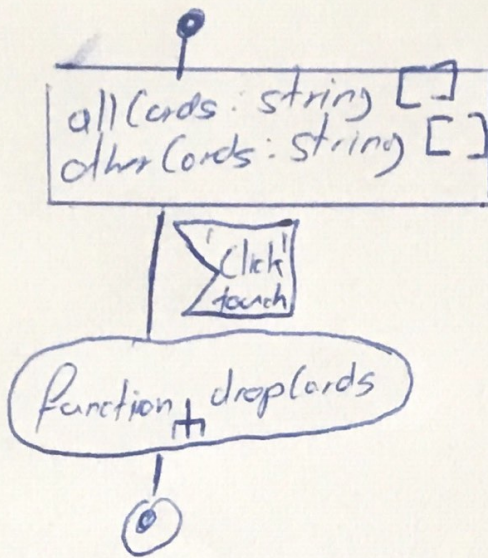 allCards : string []
otherCards : string []
'Click'
touch
function dropCards